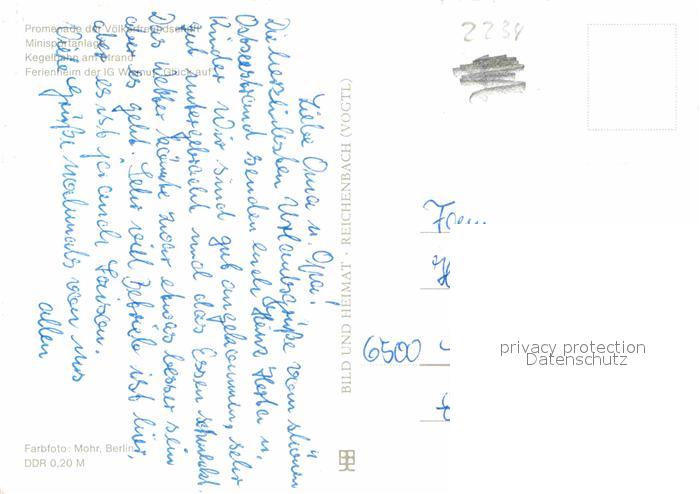 Promenade der Völkerfreundschaft
Minisportanlage
Kegelbahn am Strand
Ferienheim der IG Wismut "Glück auf"
Liebe Oma u. Opa!
Die herzlichsten Urlaubsgrüße vom schönen
Ostseestrand senden euch Hans Herta u.
Kinder. Wir sind gut angekommen, sehr
gut untergebracht und das Essen schmeckt.
Das Wetter könnte zwar etwas besser sein
aber es geht. Sehr viel Betrieb ist hier,
aber es ist ja auch Saison.
Viele Grüße nochmals von uns
allen
BILD UND HEIMAT · REICHENBACH (VOGTL)
Farbfoto: Mohr, Berlin
DDR 0,20 M
2234
6500
privacy protection
Datenschutz